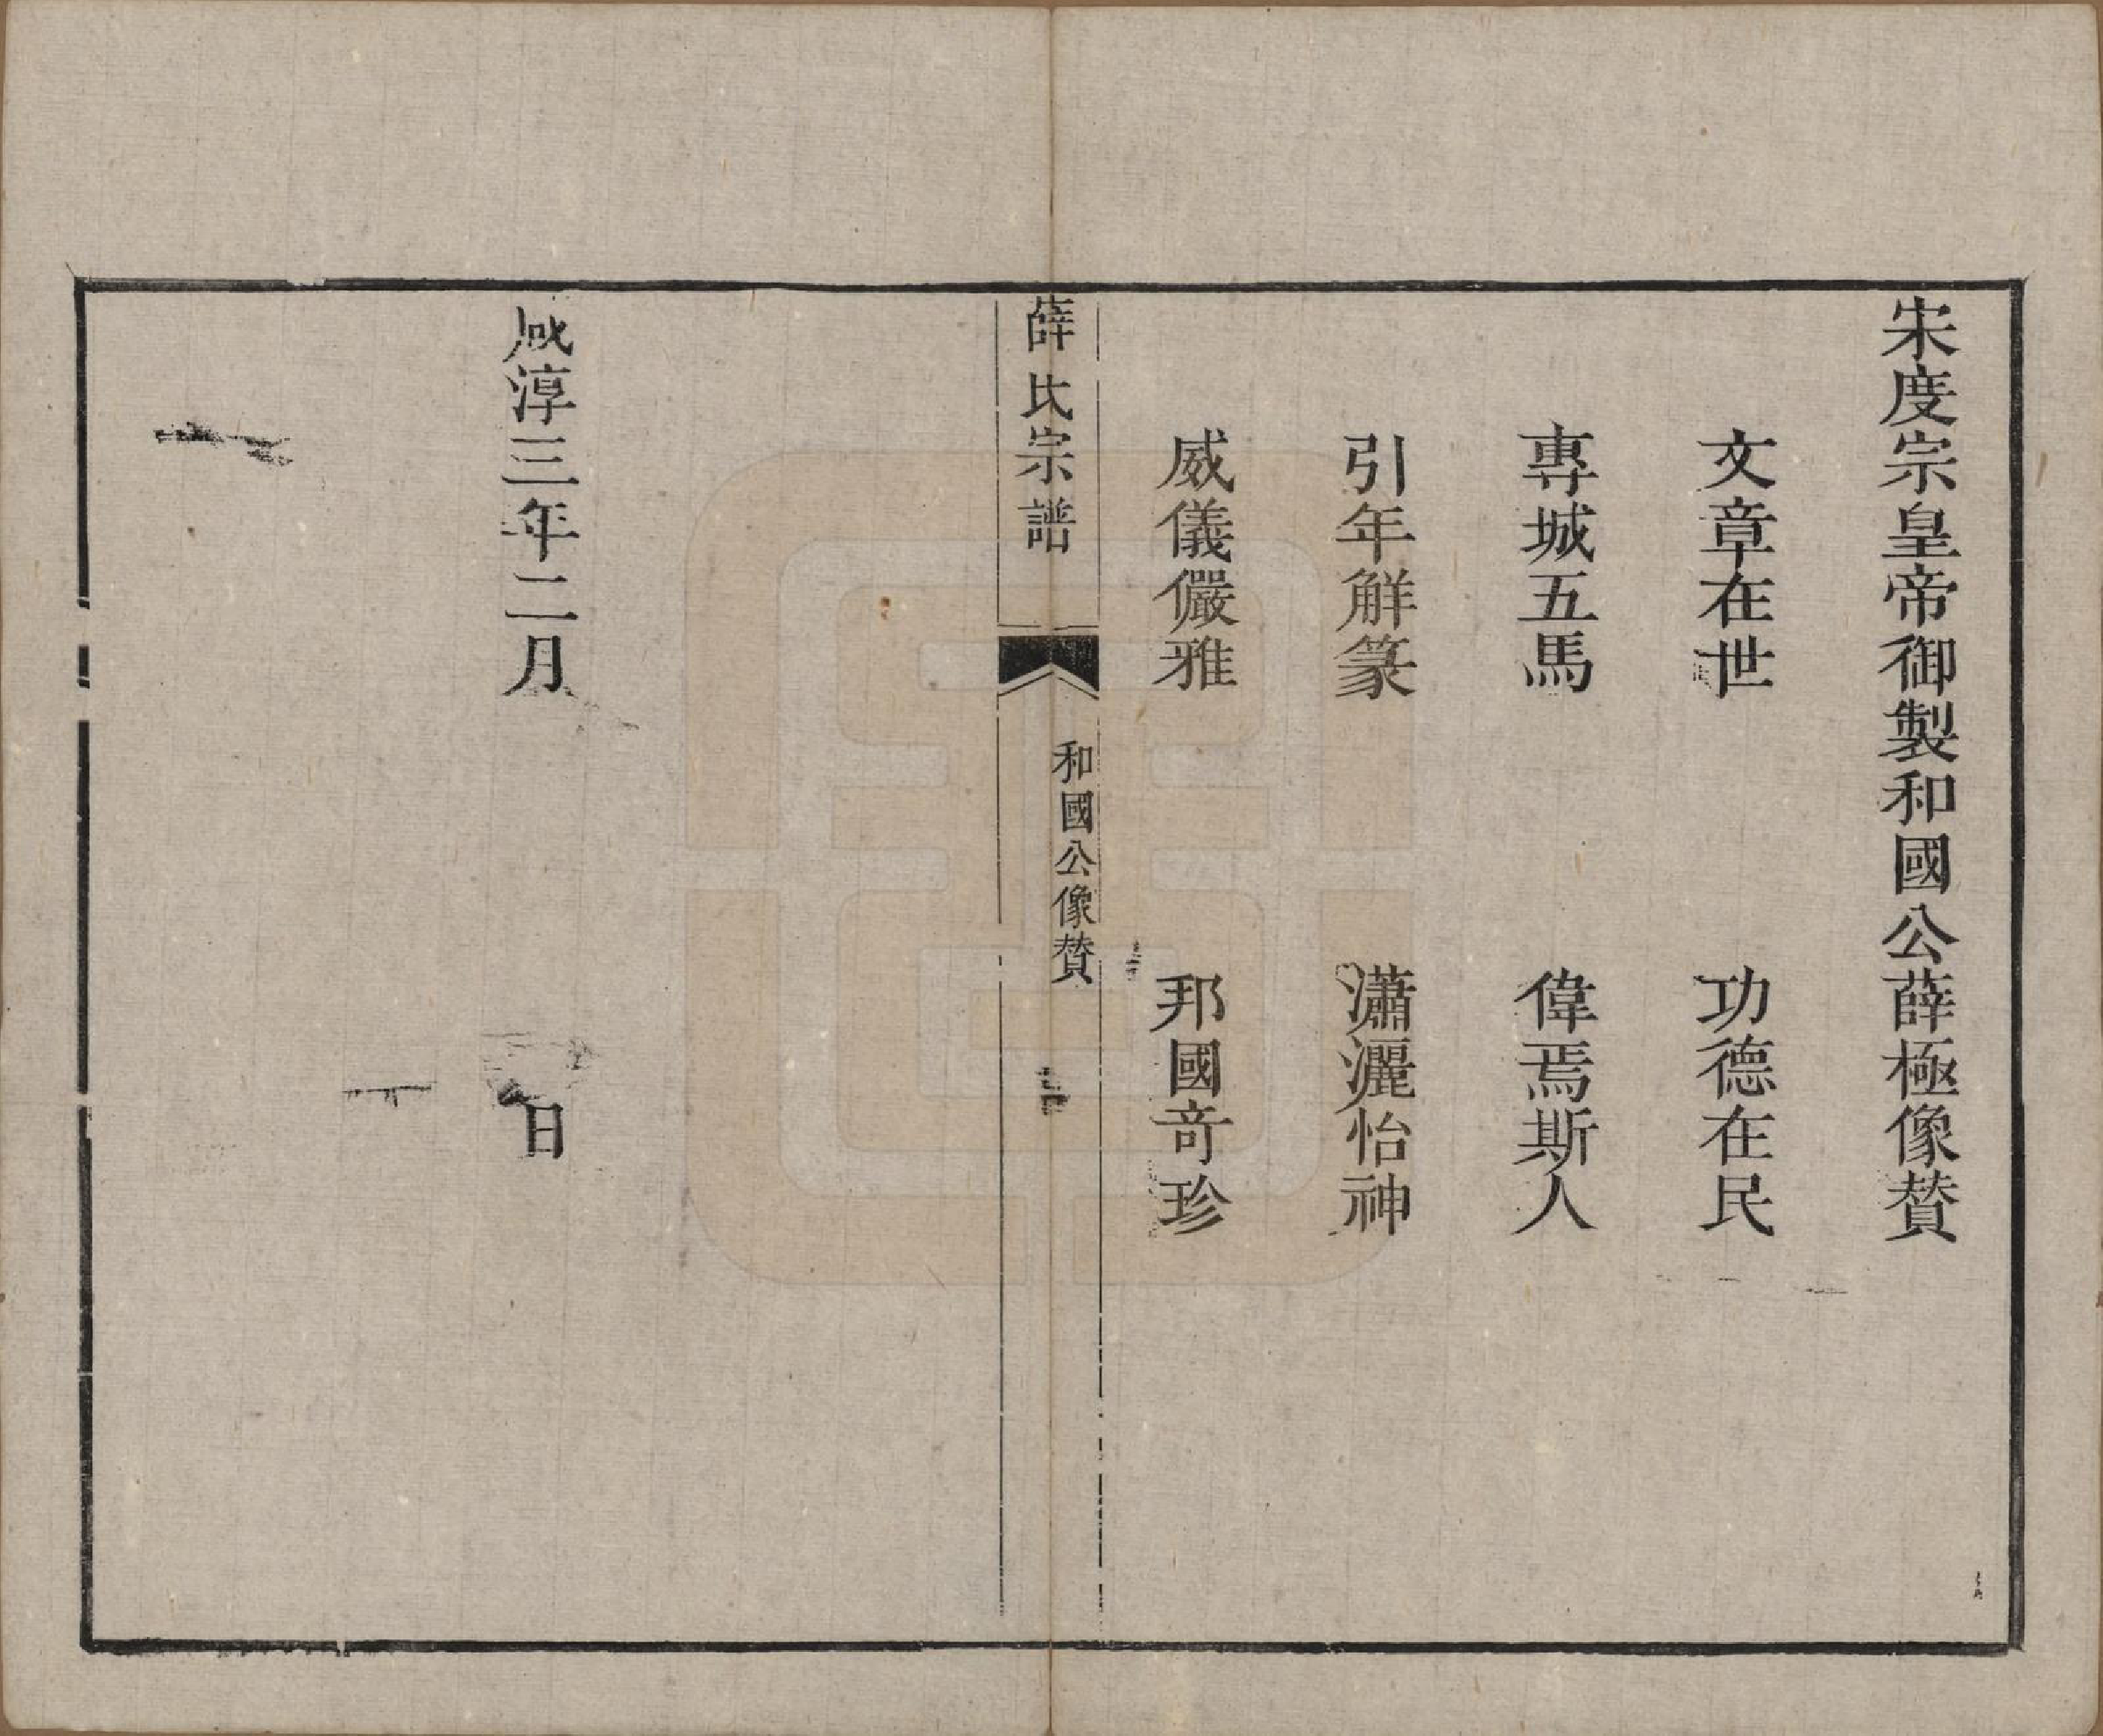 宋度宗皇帝御製和國公薛極像贊
文章在世　功德在民
專城五馬　偉焉斯人
引年解篆　瀟灑怡神
威儀儼雅　邦國奇珍
薛氏宗譜　和國公像贊
咸淳三年二月　日